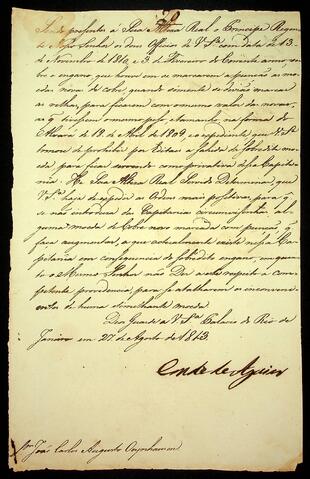 Sendo presentes a Sua Alteza Real o Principe Regente
de Nosso Senhor os dous Officios de V.Sª com data de 13
de Novembro de 1812, e 3 de Fevereiro do Corrente anno, so-
bre o engano, que houve em se marcarem a punção as moe-
das nova de cobre, quando sómente se devião marcar
as velhas, para ficarem com o mesmo valor das novas,
a q' tivessem o mesmo peso, e tamanho, na forma do
Alvará de 18 de Abril de 1809, e o expediente que V.Sª
tomou de prohibir por Editaes a sahida da sobredita moe-
da para ficar correndo como privativa dessa Capita-
nia. He Sua Alteza Real Servido Determinar, que
V.Sª haja de expedir as Ordens mais positivas, para q'
se não introduza das Capitanias circumvizinhas al-
guma moeda de Cobre novo marcada com punção, q'
faça augmentar, a que actualmente existe nessa Ca-
pitania em consequencia do sobredito engano, em quan-
to o Mesmo Senhor não Der a este respeito a com-
petente providencia, para se atalharem os inconveni-
entes de huma similhante moeda.
Deos Guarde a V.Sª Palacio do Rio de
Janeiro em 27 de Agosto de 1813.
Conde de Aguiar
Snr João Carlos Augusto Oeynhausen